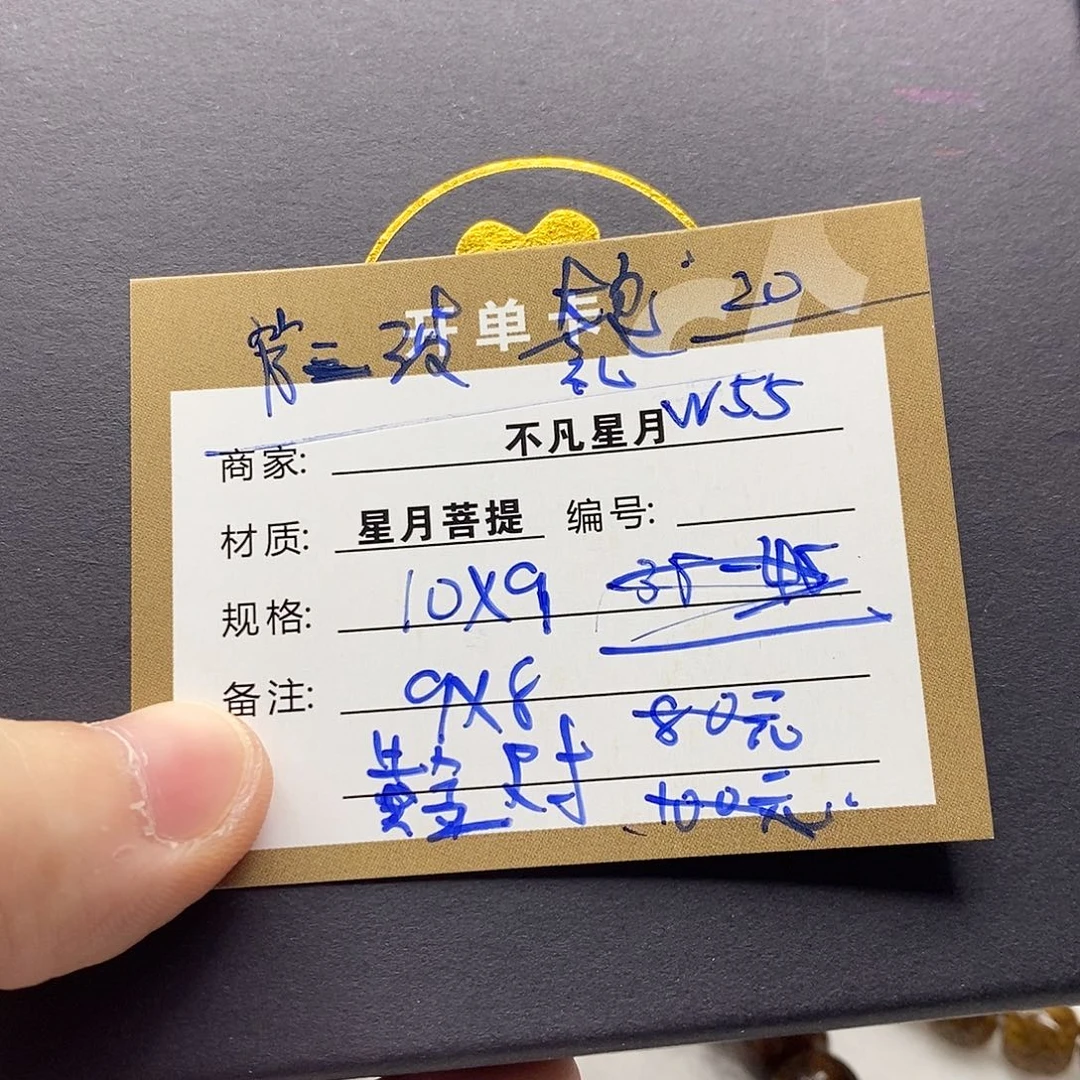 第三波 20
开单卡
W55
商家: 不凡星月
材质: 星月菩提 编号:
规格: 10X9 35-45
备注: 9X8 80元
黄金尺寸 100元